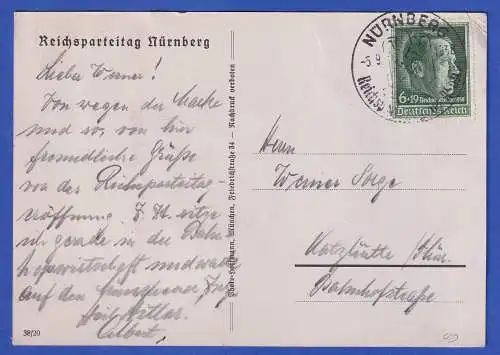 Reichsparteitag Nürnberg
Lieber Werner!
Von wegen der Marke
und so, von hier
freundliche Grüße
von der Reichsparteitag-
eröffnung. Z. Zt. sitze
ich gerade in der Bahn-
hofswirtschaft und warte
auf den
Heil Hitler
Albert.
38/20
Photo-Hoffmann, München, Friedrichstraße 34 — Nachdruck verboten
NÜRNBERG
-5.9.
Reichsp
6+19 Reichsparteitag 1938
Deutsches Reich
Herrn
Werner Sorge
Katzhütte /Thür.
Bahnhofstraße